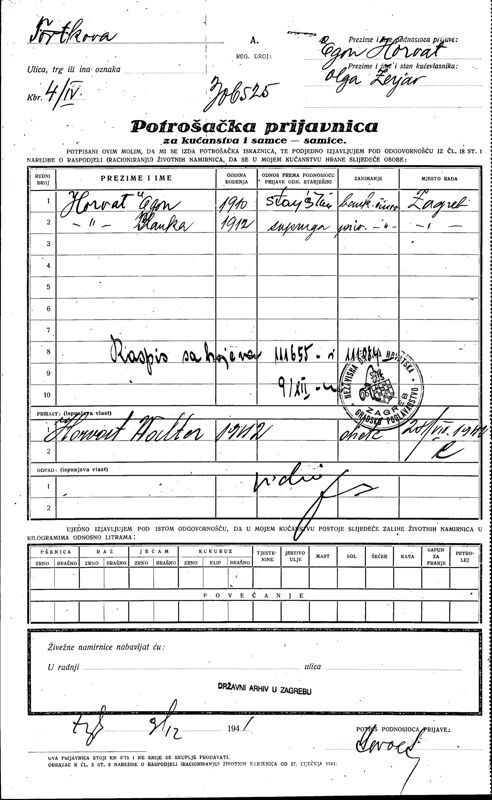 Tvrtkova
A.
Prezime i ime podnosioca prijave:
Egon Horvat
Ulica, trg ili ina oznaka
REG. BROJ:
Prezime i ime i stan kućevlasnika:
Olga Zerjav
Kbr. 4/IV.
306525
Potrošačka prijavnica
za kućanstva i samce — samice.
POTPISANI OVIM MOLIM, DA MI SE IZDA POTROŠAČKA ISKAZNICA, TE PODJEDNO IZJAVLJUJEM POD ODGOVORNOŠĆU IZ ČL. 18 ST. 1
NAREDBE O RASPODJELI (RACIONIRANJU) ŽIVOTNIH NAMIRNICA, DA SE U MOJEM KUĆANSTVU HRANE SLIJEDEĆE OSOBE:
REDNI BROJ
PREZIME I IME
GODINA ROĐENJA
ODNOS PREMA PODNOSIOCU PRIJAVE ODN. STARJEŠINI
ZANIMANJE
MJESTO RADA
1 Horvat Egon 1910 Zagreb
2 —„— Blanka 1912 supruga priv. —„— —„—
3
4
5
6
7
8 Raspis sa brojeva 111655
9 9/XII
10
NEZAVISNA DRŽAVA HRVATSKA
ZAGREB
GRADSKO POGLAVARSTVO
PRIRAST: (ispunjava vlast)
1 Horvat Walter 1942 dijete
2
ODPAD: (ispunjava vlast)
1
2
UJEDNO IZJAVLJUJEM POD ISTOM ODGOVORNOŠĆU, DA U MOJEM KUĆANSTVU POSTOJE SLIJEDEĆE ZALIHE ŽIVOTNIH NAMIRNICA U
KILOGRAMIMA ODNOSNO LITRAMA:
PŠENICA RAŽ JEČAM KUKURUZ TJESTENINE JESTIVO ULJE MAST SOL ŠEĆER KAVA SAPUN ZA PRANJE PETROLEJ
ZRNO BRAŠNO ZRNO BRAŠNO ZRNO BRAŠNO ZRNO KLIP BRAŠNO
POVEĆANJE
Živežne namirnice nabavljat ću:
U radnji ulica
DRŽAVNI ARHIV U ZAGREBU
Zgb 9/12 1941
POTPIS PODNOSIOCA PRIJAVE:
Horvat
OVA PRIJAVNICA STOJI KN 0'75 I NE SMIJE SE SKUPLJE PRODAVATI.
OBRAZAC K ČL. 2 ST. 3 NAREDBE O RASPODJELI (RACIONIRANJU) ŽIVOTNIH NAMIRNICA OD 27. SIJEČNJA 1941.